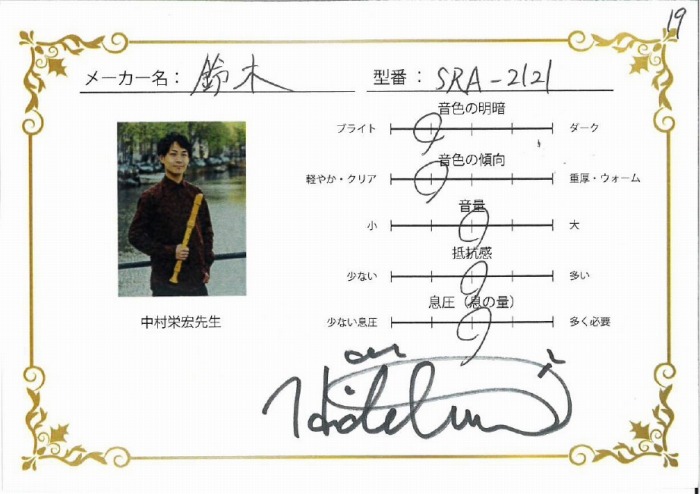 19
メーカー名： 鈴木 型番： SRA-2121
音色の明暗
ブライト ダーク
音色の傾向
軽やか・クリア 重厚・ウォーム
音量
小 大
抵抗感
少ない 多い
息圧（息の量）
少ない息圧 多く必要
中村栄宏先生